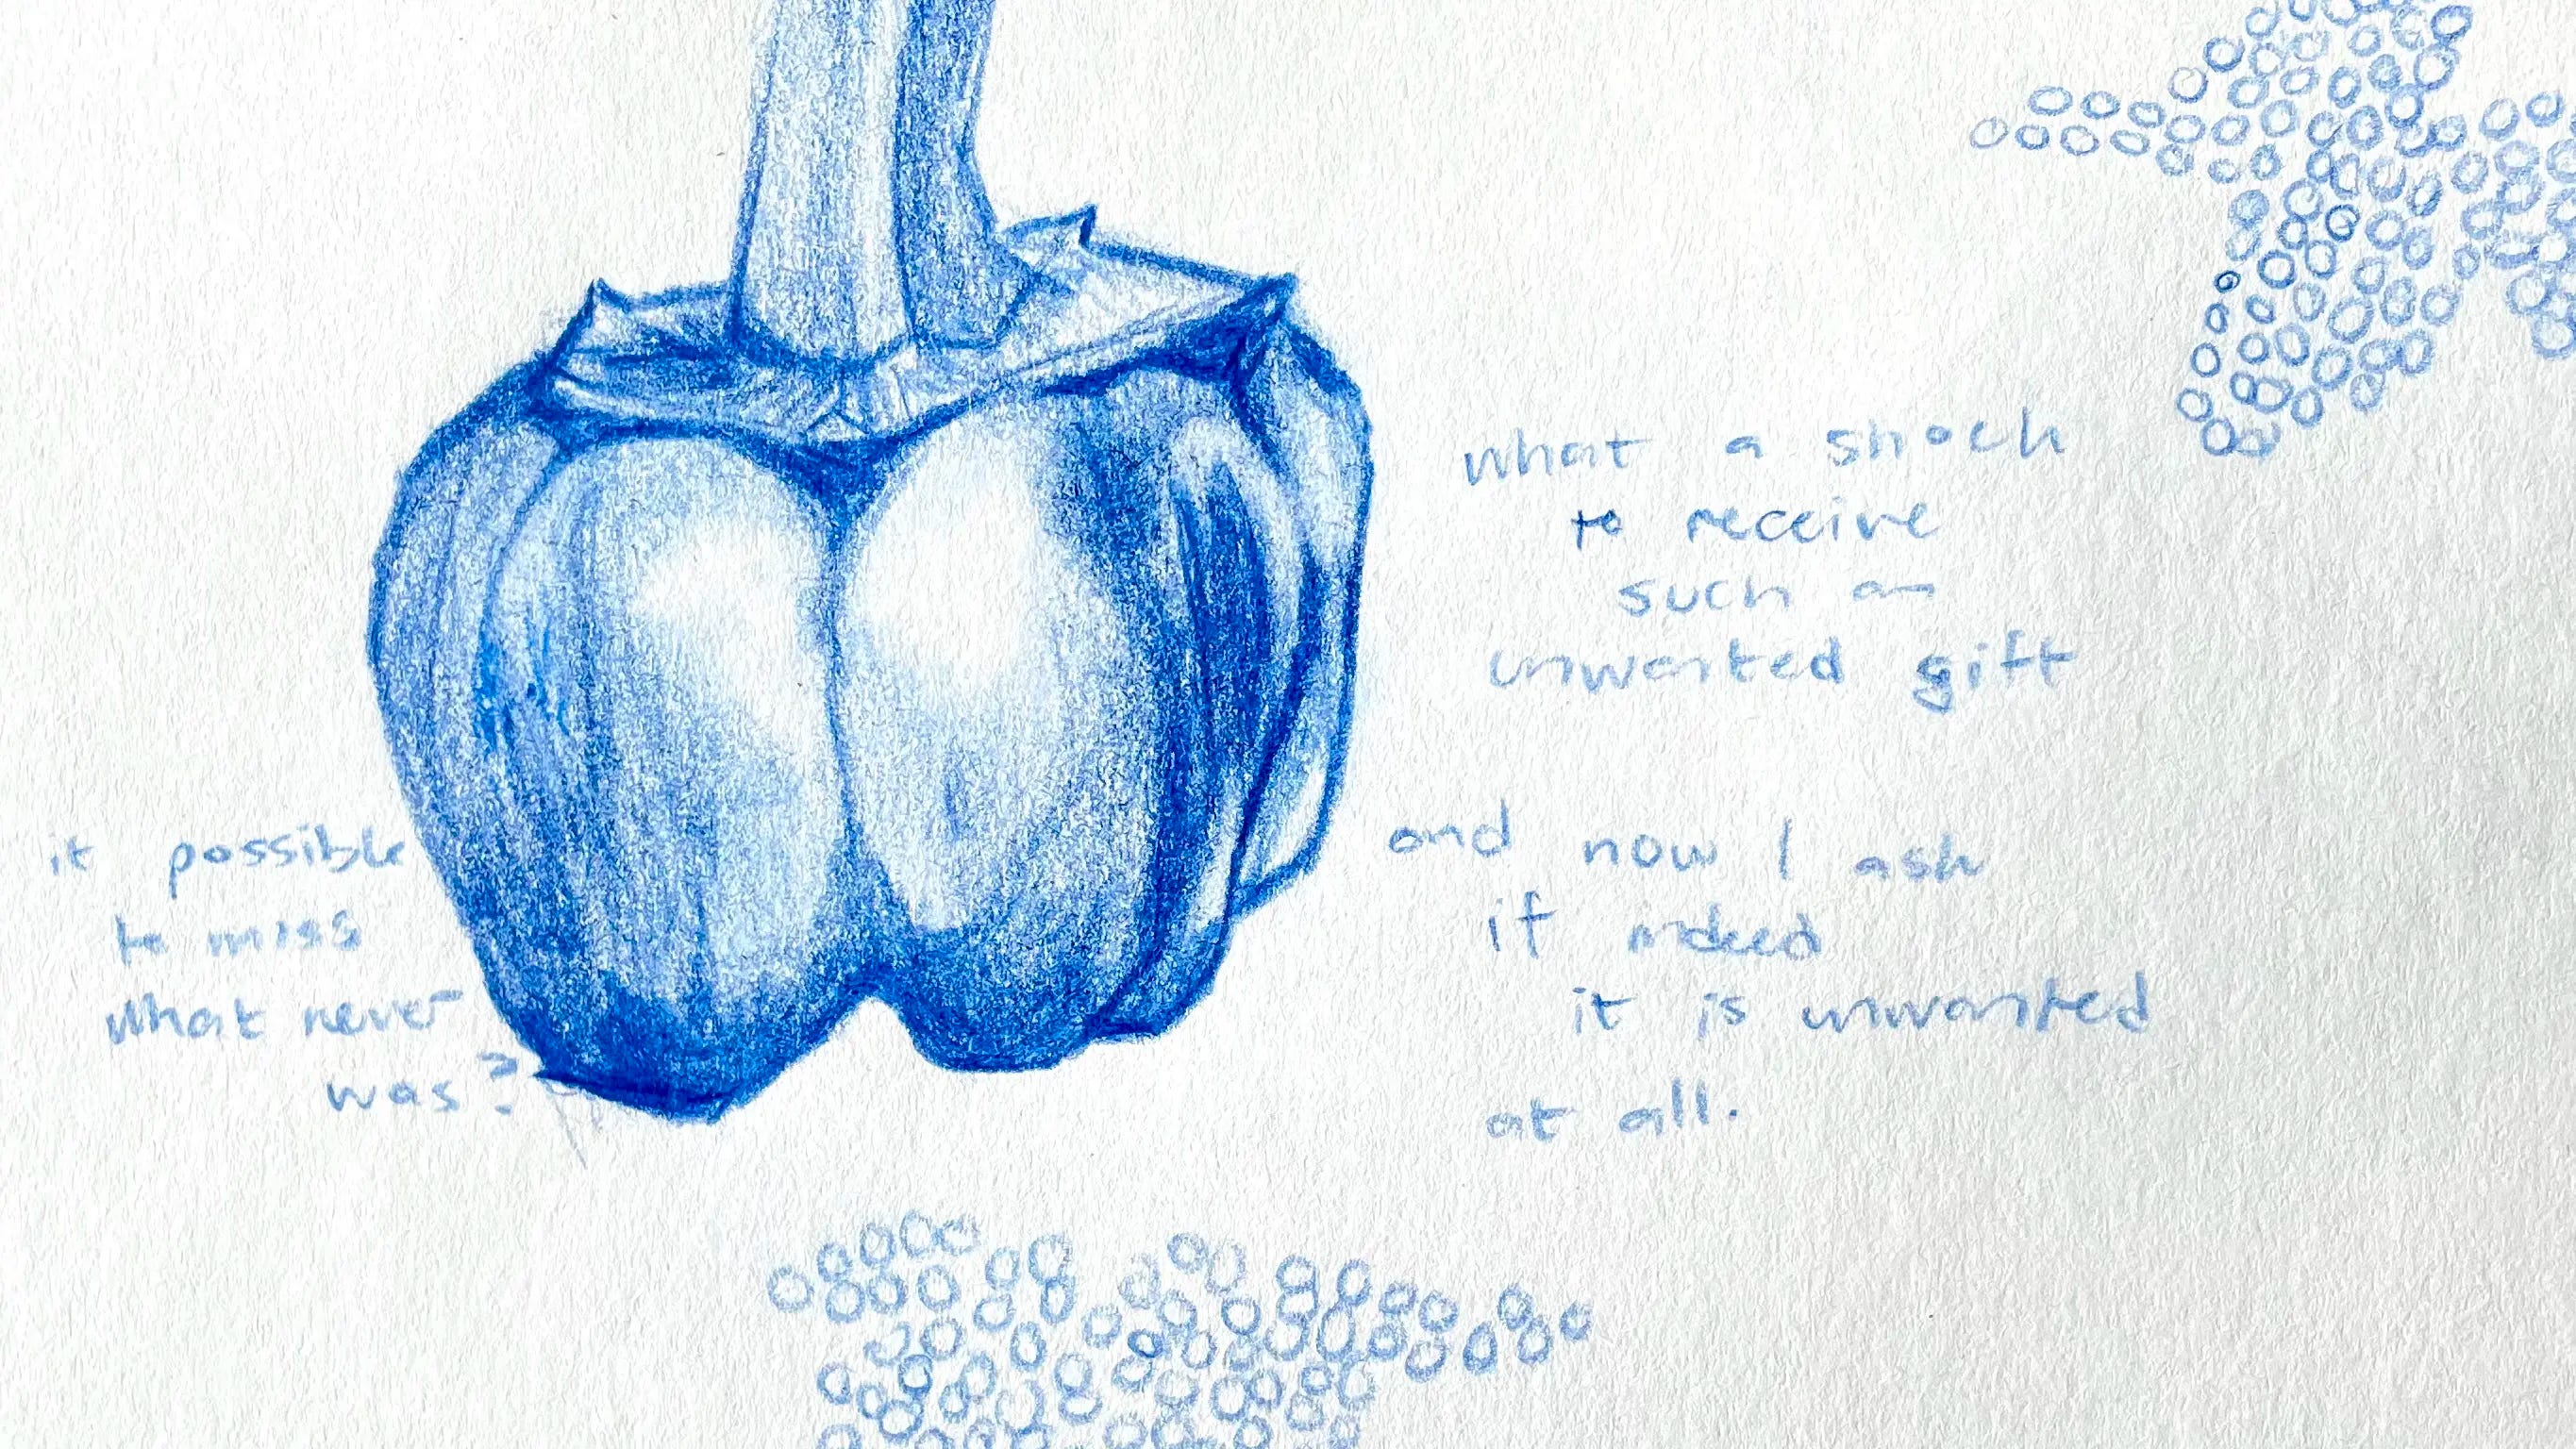 what a shock
to receive
such an
unwanted gift
and now I ask
if indeed
it is unwanted
at all.
it possible
to miss
what never
was?